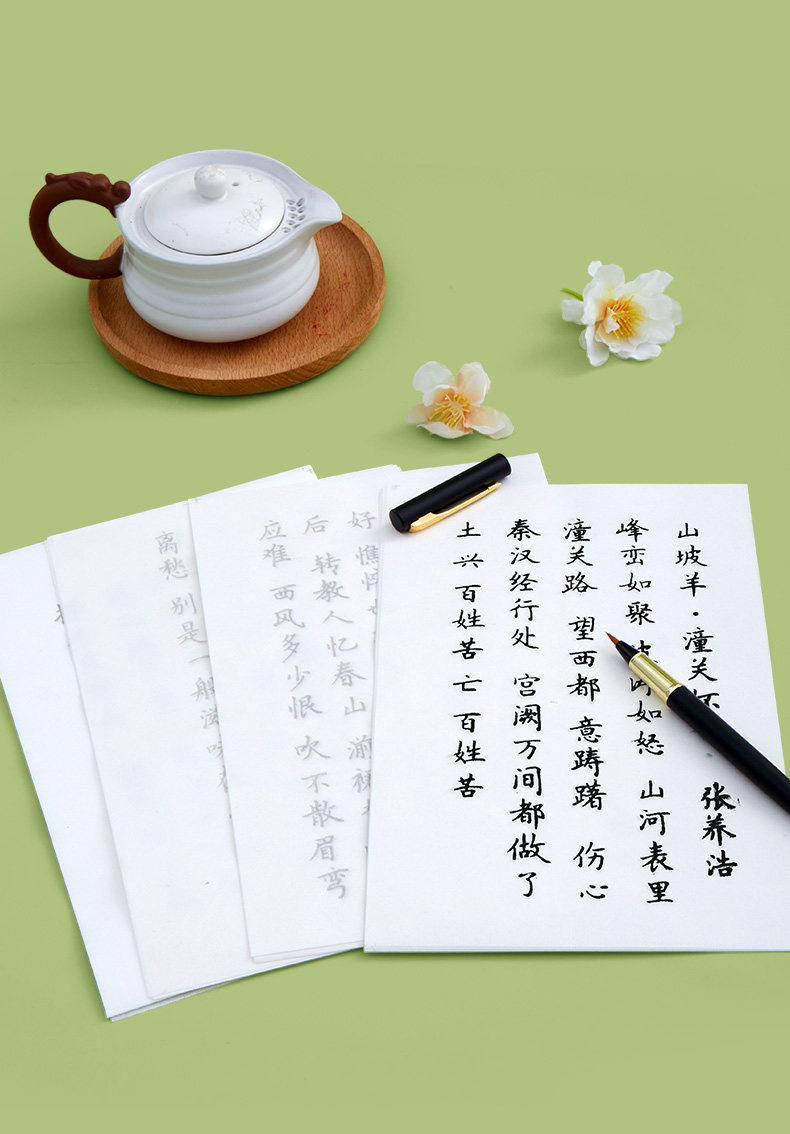 山坡羊·潼关
张养浩
峰峦如聚 如怒 山河表里
潼关路 望西都 意踌躇 伤心
秦汉经行处 宫阙万间都做了
土 兴百姓苦 亡 百姓苦
好 憔悴
后 转教人忆春山 湔裙
应难 西风多少恨 吹不散眉弯
离愁 别是一般滋味